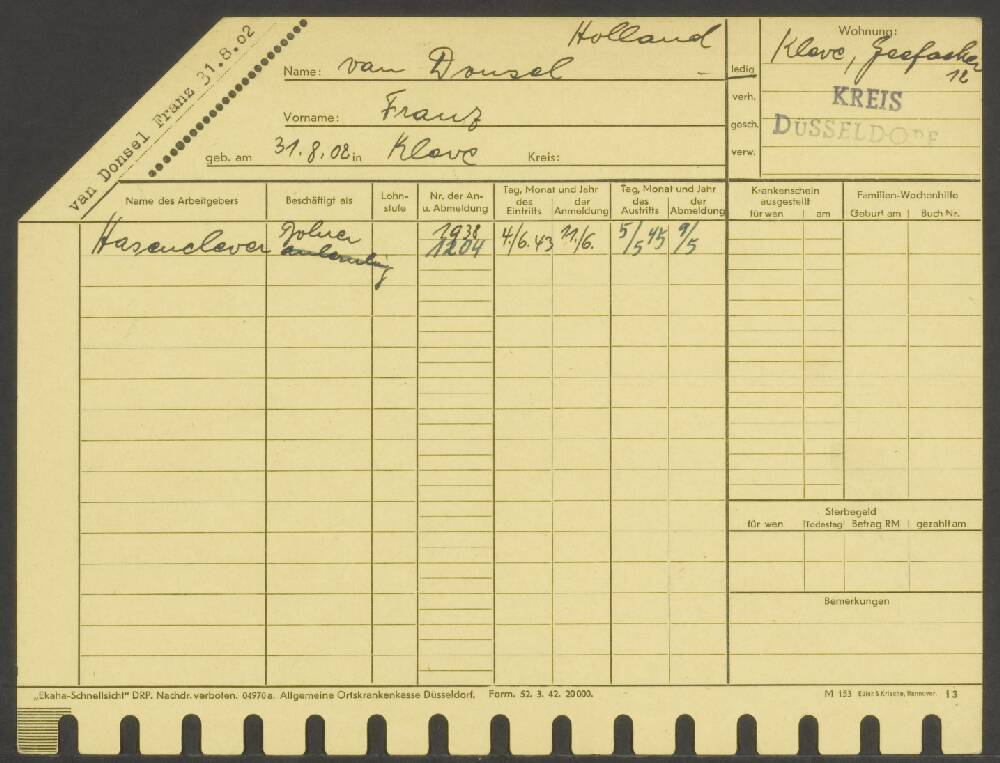 van Donsel Franz 31.8.02
Holland
Name: van Donsel
Vorname: Franz
geb. am 31.8.02 in Kleve Kreis:
ledig
verh.
gesch.
verw.
Wohnung:
Kleve,
12
KREIS
DÜSSELDORF
Name des Arbeitgebers
Beschäftigt als
Lohn-
stufe
Nr. der An-
u. Abmeldung
Tag, Monat und Jahr
des Eintritts der Anmeldung
Tag, Monat und Jahr
des Austritts der Abmeldung
Krankenschein
ausgestellt
für wen am
Familien-Wochenhilfe
Geburt am Buch Nr.
Hasenclever 1938 4/6.43 11/6. 5/5 45 9/5
1204
Sterbegeld
für wen Todestag Betrag RM gezahlt am
Bemerkungen
„Ekaha-Schnellsicht" DRP. Nachdr. verboten. 04970a. Allgemeine Ortskrankenkasse Düsseldorf. Form. 52. 3. 42. 20000.
M 153 Euler & Krische, Hannover. 13